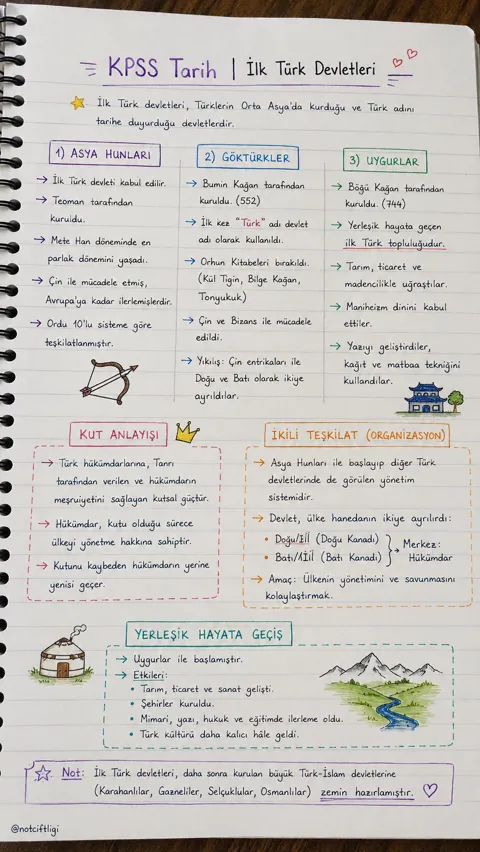 KPSS Tarih | İlk Türk Devletleri
İlk Türk devletleri, Türklerin Orta Asya'da kurduğu ve Türk adını
tarihe duyurduğu devletlerdir.
1) ASYA HUNLARI
→ İlk Türk devleti kabul edilir.
→ Teoman tarafından
kuruldu.
→ Mete Han döneminde en
parlak dönemini yaşadı.
→ Çin ile mücadele etmiş,
Avrupa'ya kadar ilerlemişlerdir.
→ Ordu 10'lu sisteme göre
teşkilatlanmıştır.
2) GÖKTÜRKLER
→ Bumin Kağan tarafından
kuruldu. (552)
→ İlk kez "Türk" adı devlet
adı olarak kullanıldı.
→ Orhun Kitabeleri bırakıldı.
(Kül Tigin, Bilge Kağan,
Tonyukuk)
→ Çin ve Bizans ile mücadele
edildi.
→ Yıkılış: Çin entrikaları ile
Doğu ve Batı olarak ikiye
ayrıldılar.
3) UYGURLAR
→ Böğü Kağan tarafından
kuruldu. (744)
→ Yerleşik hayata geçen
ilk Türk topluluğudur.
→ Tarım, ticaret ve
madencilikle uğraştılar.
→ Maniheizm dinini kabul
ettiler.
→ Yazıyı geliştirdiler,
kağıt ve matbaa tekniğini
kullandılar.
KUT ANLAYIŞI
→ Türk hükümdarlarına, Tanrı
tarafından verilen ve hükümdarın
meşruiyetini sağlayan kutsal güçtür.
→ Hükümdar, kutu olduğu sürece
ülkeyi yönetme hakkına sahiptir.
→ Kutunu kaybeden hükümdarın yerine
yenisi geçer.
İKİLİ TEŞKİLAT (ORGANIZASYON)
→ Asya Hunları ile başlayıp diğer Türk
devletlerinde de görülen yönetim
sistemidir.
→ Devlet, ülke hanedanın ikiye ayrılırdı:
• (Doğu Kanadı)
• (Batı Kanadı)
→ Merkez:
Hükümdar
→ Amaç: Ülkenin yönetimini ve savunmasını
kolaylaştırmak.
YERLEŞİK HAYATA GEÇİŞ
→ Uygurlar ile başlamıştır.
→ Etkileri:
• Tarım, ticaret ve sanat gelişti.
• Şehirler kuruldu.
• Mimari, yazı, hukuk ve eğitimde ilerleme oldu.
• Türk kültürü daha kalıcı hâle geldi.
Not: İlk Türk devletleri, daha sonra kurulan büyük Türk-İslam devletlerine
(Karahanlılar, Gazneliler, Selçuklular, Osmanlılar) zemin hazırlamıştır.
@notciftligi